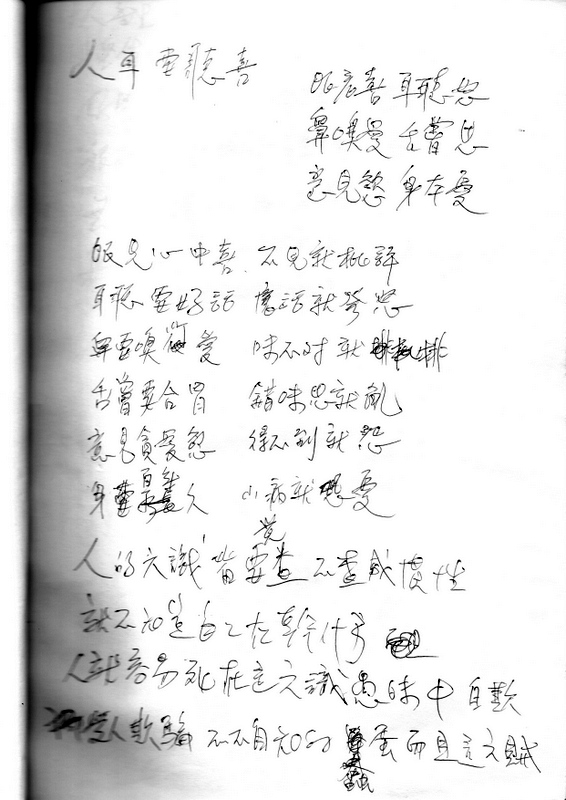 人耳要聽喜
眼看喜 耳聽怒
鼻嗅愛 舌嘗思
意見慾 身本憂
眼見心中喜 不見就批評
耳聽要好話 壞話就發怒
鼻要嗅 愛 味不对就排
舌嘗要合胃 錯味思就亂
意見貪愛慾 得不到就怨
身 久 小病就 憂
人的六識皆要覺查 不查成慣性
就不知道自己在幹什麼
人就容易死在這六識愚昧中 自欺
人欺騙 不自知的 蛋 而且這六賊